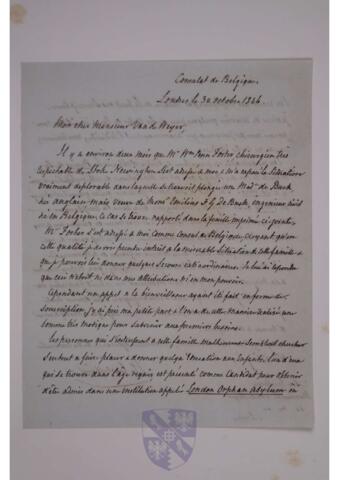 Consulat de Belgique
Londres le 30 octobre 1846
Mon cher Monsieur Van de Weyer,
Il y a environ deux mois que Mr Wm Foster, chirurgien très
respectable de Stoke Newington s'est adressé à moi & m'a exposé la situation
vraiment déplorable dans laquelle se trouvait plongée une Made de Busk
née anglaise mais veuve de feu de Busk, ingénieur civil
en Belgique. Le cas se trouve rapporté dans la feuille imprimée ci-jointe.
Mr Foster s'est adressé à moi comme consul de Belgique, croyant qu'en
cette qualité je devais prendre intérêt à la misérable situation de cette famille &
que je pouvais lui donner quelque secours extraordinaire. Je lui ai répondu
que ceci n'était ni dans mes attributions ni en mon pouvoir.
Cependant un appel à la bienveillance ayant été fait en forme de
souscription, j'y ai pris ma petite part & l'on a de cette manière réalisé une
somme très modique pour subvenir aux premiers besoins.
Les personnes qui s'intéressent à cette famille malheureuse cherchent
surtout à faire placer & donner quelque éducation aux enfants. L'un d'eux
qui se trouve dans l'âge requis est présenté comme candidat pour obtenir
d'être admis dans une institution appelée London Orphan Asylum où